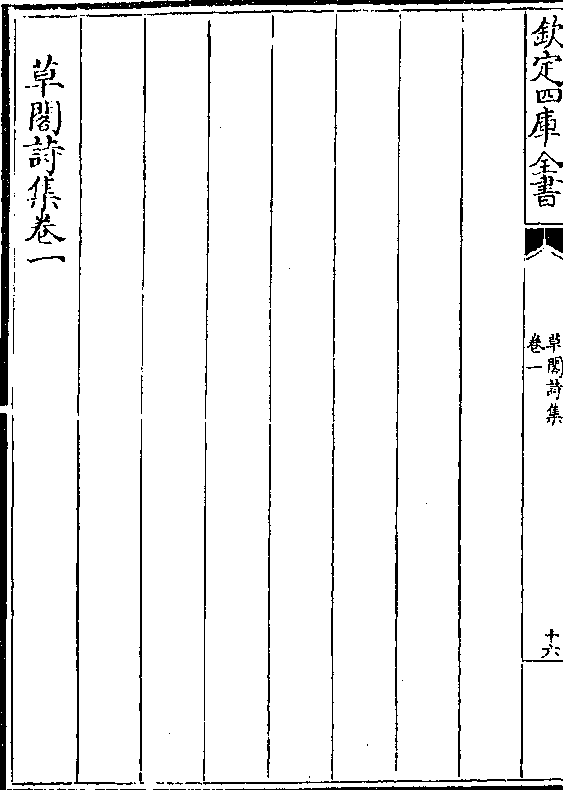 欽定四庫全書
草閣詩集
卷一
十六
草閣詩集卷一